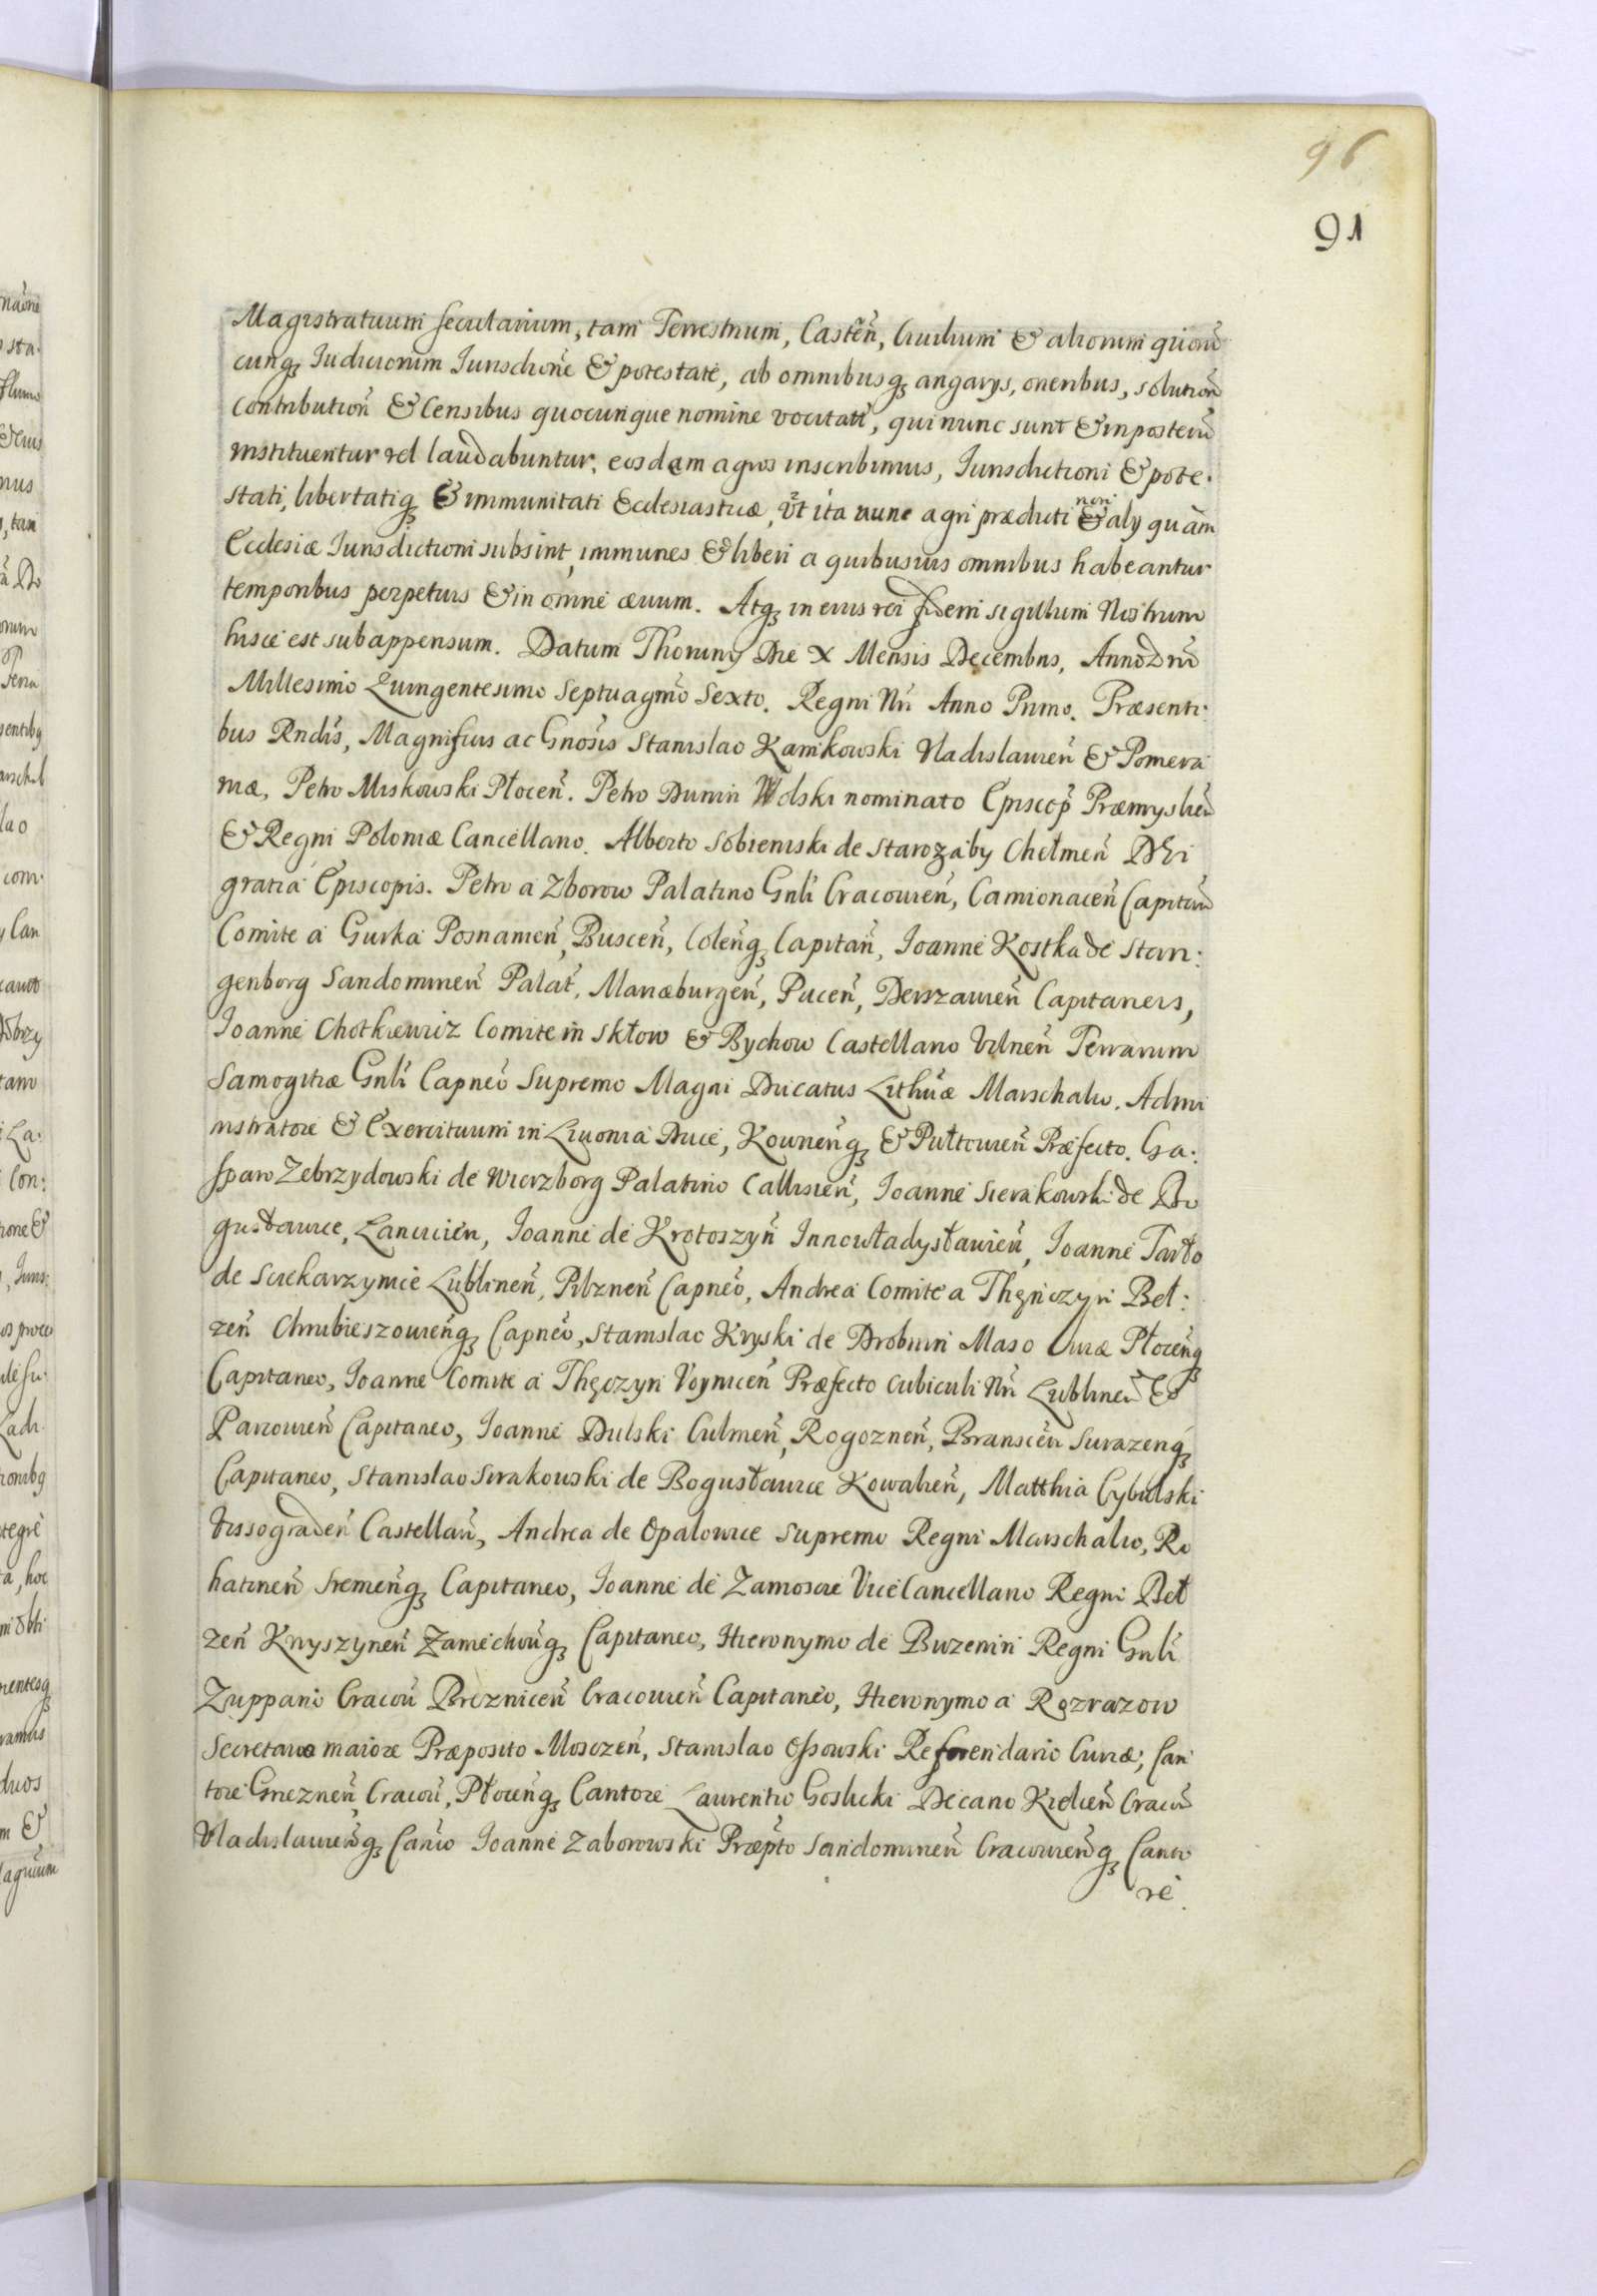 96
91
Magistratuum secularium, tam Terrestrium, Casteñ, Ciuilium & aliorum quorũ
cunq; Iudiciorum Iurisdione & potestate, ab omnibusq; angarijs, oneribus, solutioñ
contributioñ & Censibus quocunque nomine vocitati, qui nunc sunt & in posterũ
instituentur vel laudabuntur, eosdem agros inscribimus, Iurisdictioni & pote.
stati, libertatiq; & immunitati Ecclesiasticæ, vt ita nunc agri prædicti & non alij quàm
Ecclesiæ Iurisdictioni subsint, immunes & liberi a quibusuis omnibus habeantur
temporibus perpetuis & in omne æuum. Atq; in eius rei fidem sigillum Nostrum
hisce est subappensum. Datum Thoruny Die X Mensis Decembris, Anno Dñi
Millesimo Quingentesimo Septuagm̃o Sexto. Regni Nri Anno Primo. Præsenti:
bus Rndis, Magnificis ac Gnosis Stanislao Karnkowski Vladislauieñ & Pomera
niæ, Petro Miskowski Płoceñ. Petro Dunin Wolski nominato Episcop̃ Præmyslieñ
& Regni Poloniæ Cancellario. Alberto Sobieniski de Starozaby Chełmeñ DEi
gratia Episcopis. Petro a Zborow Palatino Gnli Cracouieñ, Camionaceñ Capitañ
Comite a Gurka Posnanieñ, Busceñ, Coleñq; Capitañ, Ioanne Kostka de Stan:
genborg Sandomirieñ Palat, Mariæburgeñ, Puceñ, Derszauieñ Capitaneis,
Ioanne Chotkiewicz Comite in Skłow & Bychow Castellano Vilneñ Terrarum
Samogitiæ Gnli Capneo Supremo Magni Ducatus Lithuæ Marschalco. Admi
nistratore & Exercituum in Liuonia Duce, Kowneñq; & Pułtouieñ Præfecto. Ga:
sparo Zebrzydowski de Wierzborg Palatino Callisieñ, Ioanne Sierakowski de Bo
gusławice, Lanicieñ, Ioanne de Krotoszyñ Innowładysławieñ, Ioanne Tarło
de Sczekarzymice Lublineñ, Pilzneñ Capneo, Andrea Comite a Thęnczyn Beł:
zeñ Chrubieszouieñq; Capneo, Stanislao Kryski de Drobnin Maso Uiæ Płoceñq;
Capitaneo, Ioanne Comite a Thęczyn Voyniceñ Præfecto cubiculi Nri Lublineñ &
Parcouieñ Capitaneo, Ioanne Dulski Culmeñ, Rogozneñ, Bransceñ Surazenq;
Capitaneo, Stanislao Sirakowski de Bogusławice Kowalieñ, Matthia Cybulski
Vissogradeñ Castellañ, Andrea de Opalowice Supremo Regni Marschalco, Ro
hatineñ Sremeñq; Capitaneo, Ioanne de Zamoscie ViceCancellario Regni Beł
zeñ Knyszyneñ Zamechouq; Capitaneo, Hieronymo de Buzenin Regni Gnli
Zuppario Cracoũ Brezniceñ Cracouieñ Capitaneo, Hieronymo a Rozrazow
Secretario maiore Præposito Mosczeñ, Stanislao Ossowski Referendario Curiæ, Can
tore Gnezneñ, Cracoũ, Płoceñq; Cantore Laurentio Goslicki Decano Kielceñ Cracoũ
Vladislauieñq; Canco Ioanne Zaborowski Præpto Sandomirieñ Cracouieñq; Canto
re.